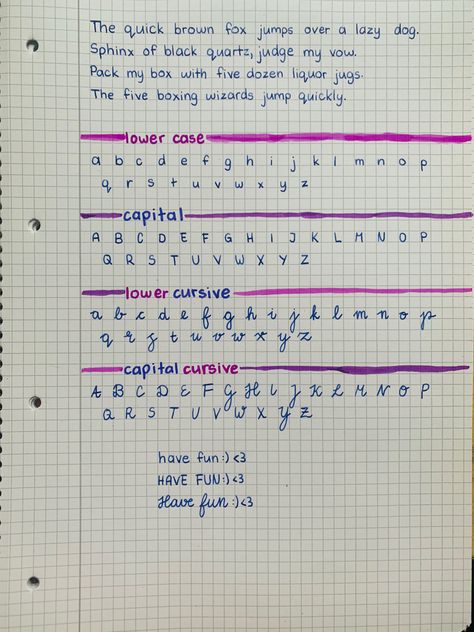 The quick brown fox jumps over a lazy dog.
Sphinx of black quartz, judge my vow.
Pack my box with five dozen liquor jugs.
The five boxing wizards jump quickly.
lower case
a b c d e f g h i j k l m n o p
q r s t u v w x y z
capital
A B C D E F G H I J K L M N O P
Q R S T U V W X Y Z
lower cursive
a b c d e f g h i j k l m n o p
q r s t u v w x y z
capital cursive
A B C D E F G H I J K L M N O P
Q R S T U V W X Y Z
have fun:) <3
HAVE FUN:) <3
Have fun :) <3